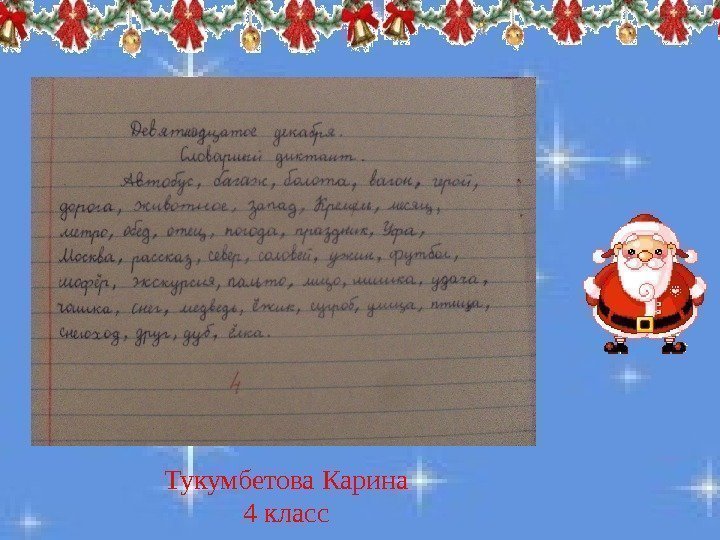 Девятнадцатое декабря.
Словарный диктант.
Автобус, багаж, болота, вагон, герой,
дорога, животное, запад, Кремль, месяц,
метро, обед, отец, погода, праздник,
Москва, рассказ, север, соловей, ужин, футбол,
шофёр, экскурсия, пальто, лицо, удача,
чашка, снег, медведь, ёжик, сугроб, улица, птица,
снегоход, друг, дуб, ёлка.
4
Тукумбетова Карина
4 класс